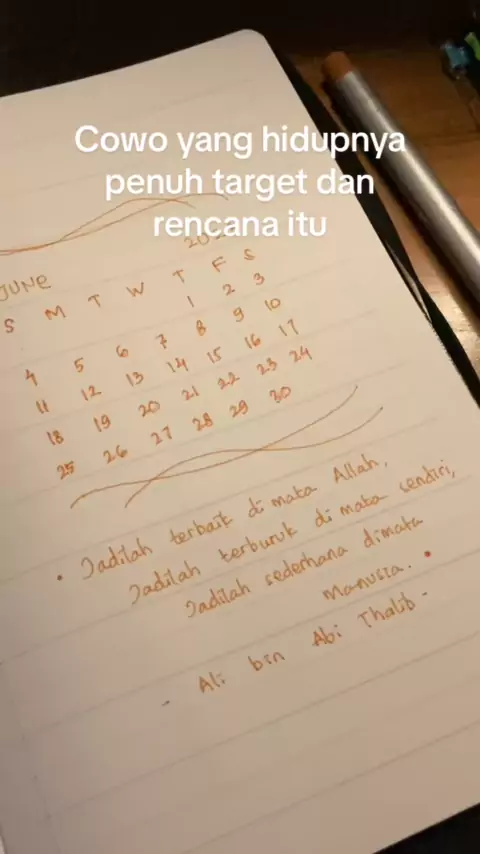 Cowo yang hidupnya
penuh target dan
rencana itu
JUNE
S M T W T F S
1 2 3
4 5 6 7 8 9 10
11 12 13 14 15 16 17
18 19 20 21 22 23 24
25 26 27 28 29 30
• Jadilah terbaik di mata Allah,
Jadilah terburuk di mata sendiri,
Jadilah sederhana dimata
manusia. •
- Ali bin Abi Thalib -